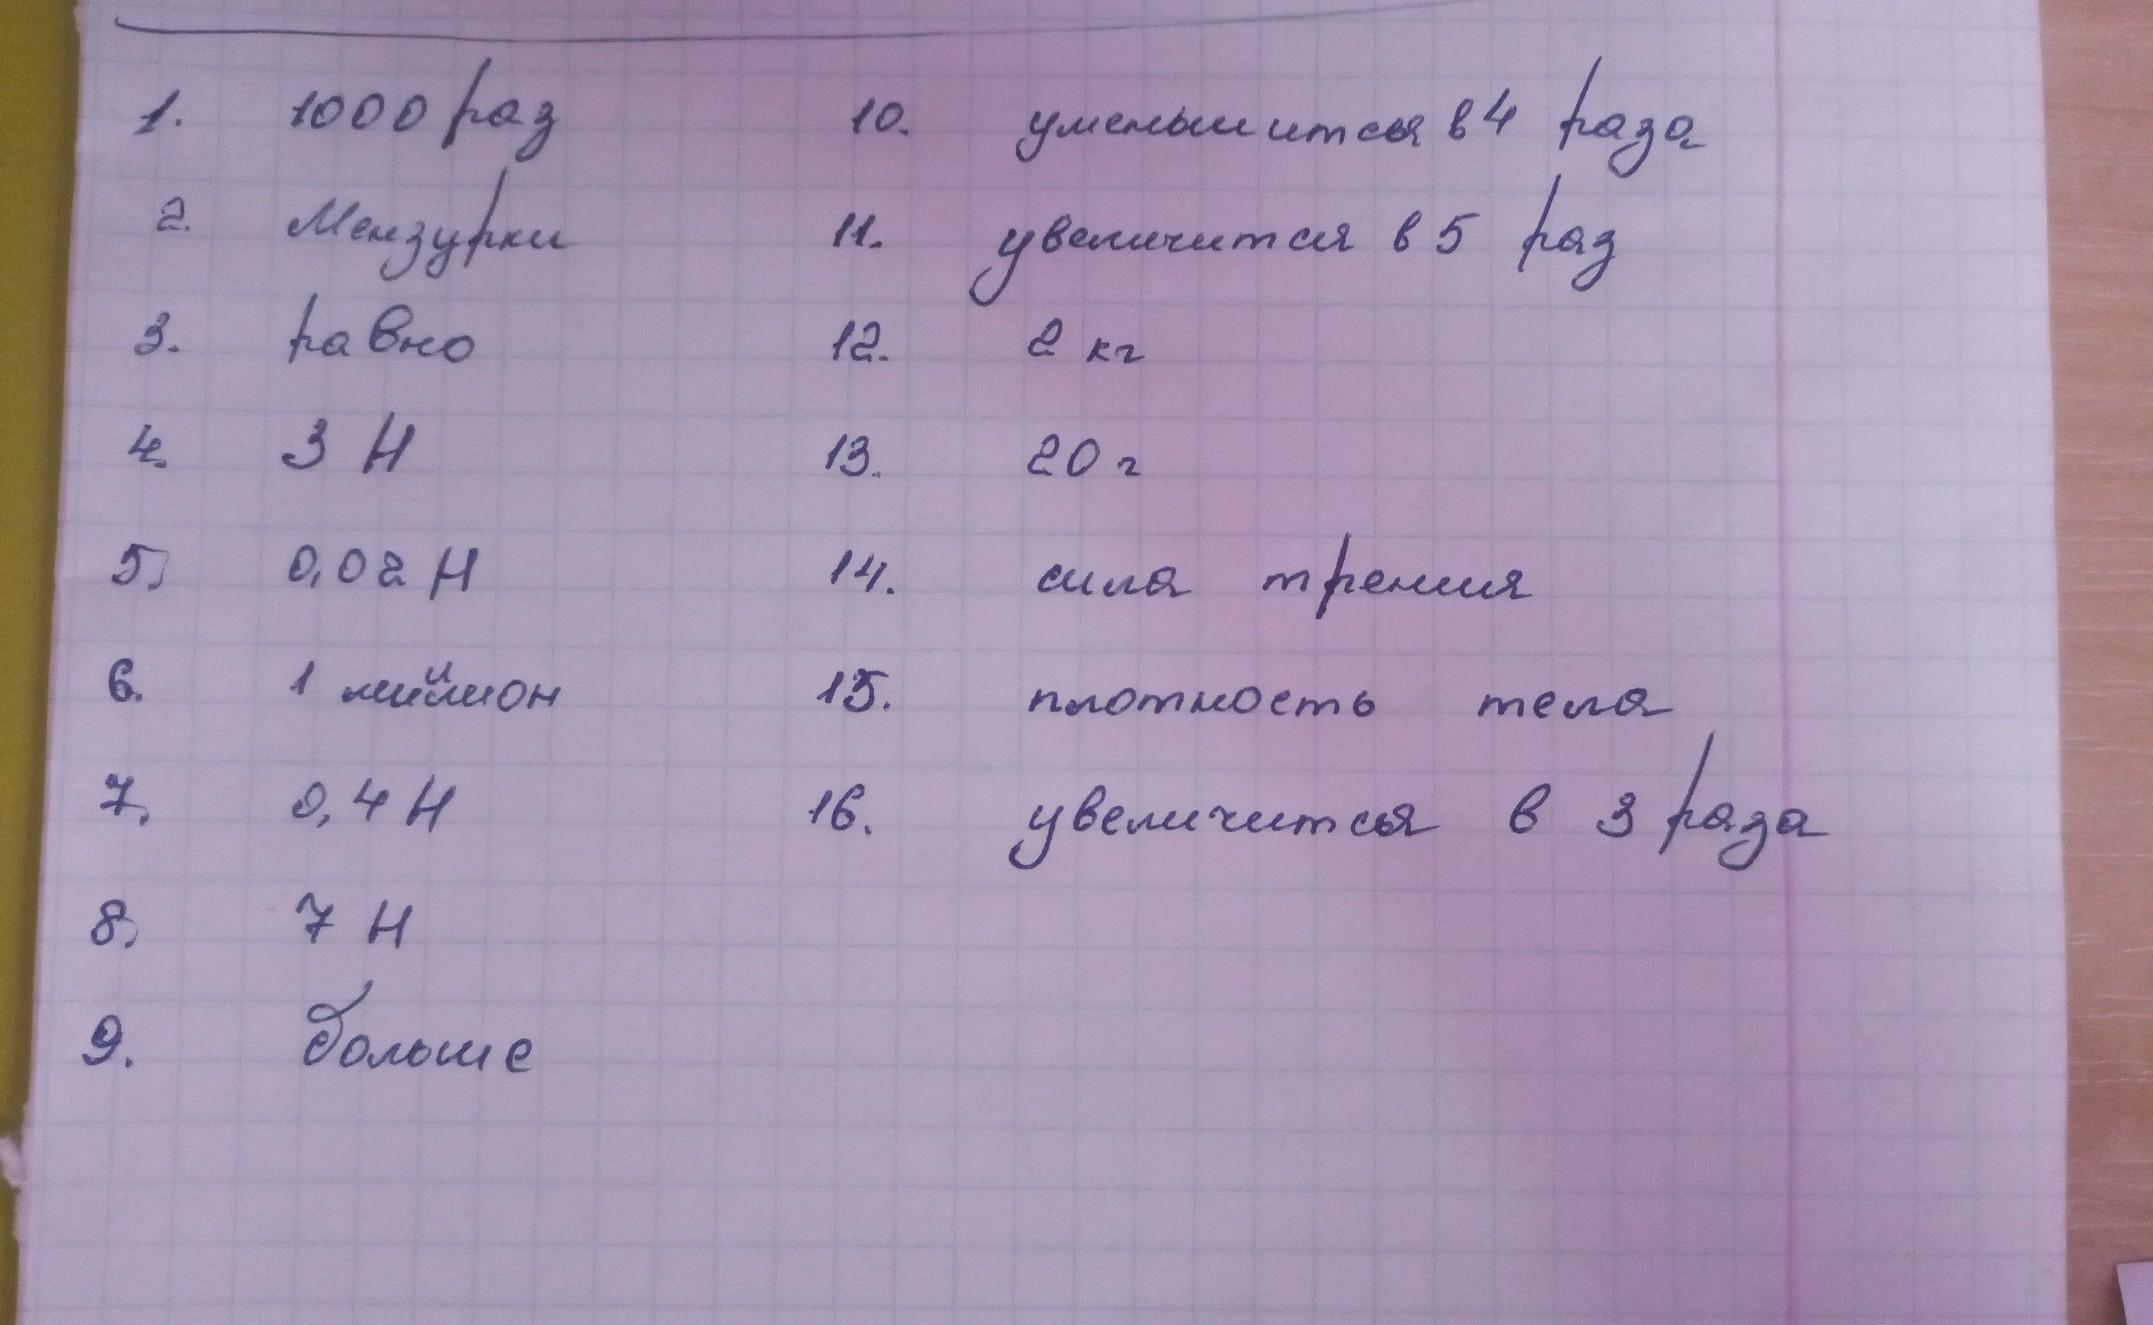 1. 1000 раз
2. Мензурки
3. равно
4. 3 Н
5. 0,02 Н
6. 1 миллион
7. 0,4 Н
8. 7 Н
9. больше
10. уменьшиться в 4 раза
11. увеличится в 5 раз
12. 2 кг
13. 20 г
14. сила трения
15. плотность тела
16. увеличиться в 3 раза